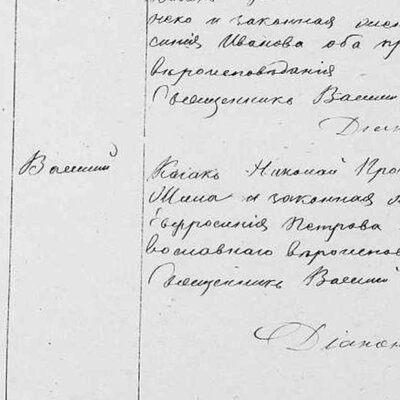 неко и законная
синія Иванова оба пр
вѣроисповѣданія
Священникъ Васил
Діа
Василій
Козакъ Николай Про
Мина и законная
Ефросинія Петрова
вославнаго вѣроиспов
Священникъ Василій
Діакон